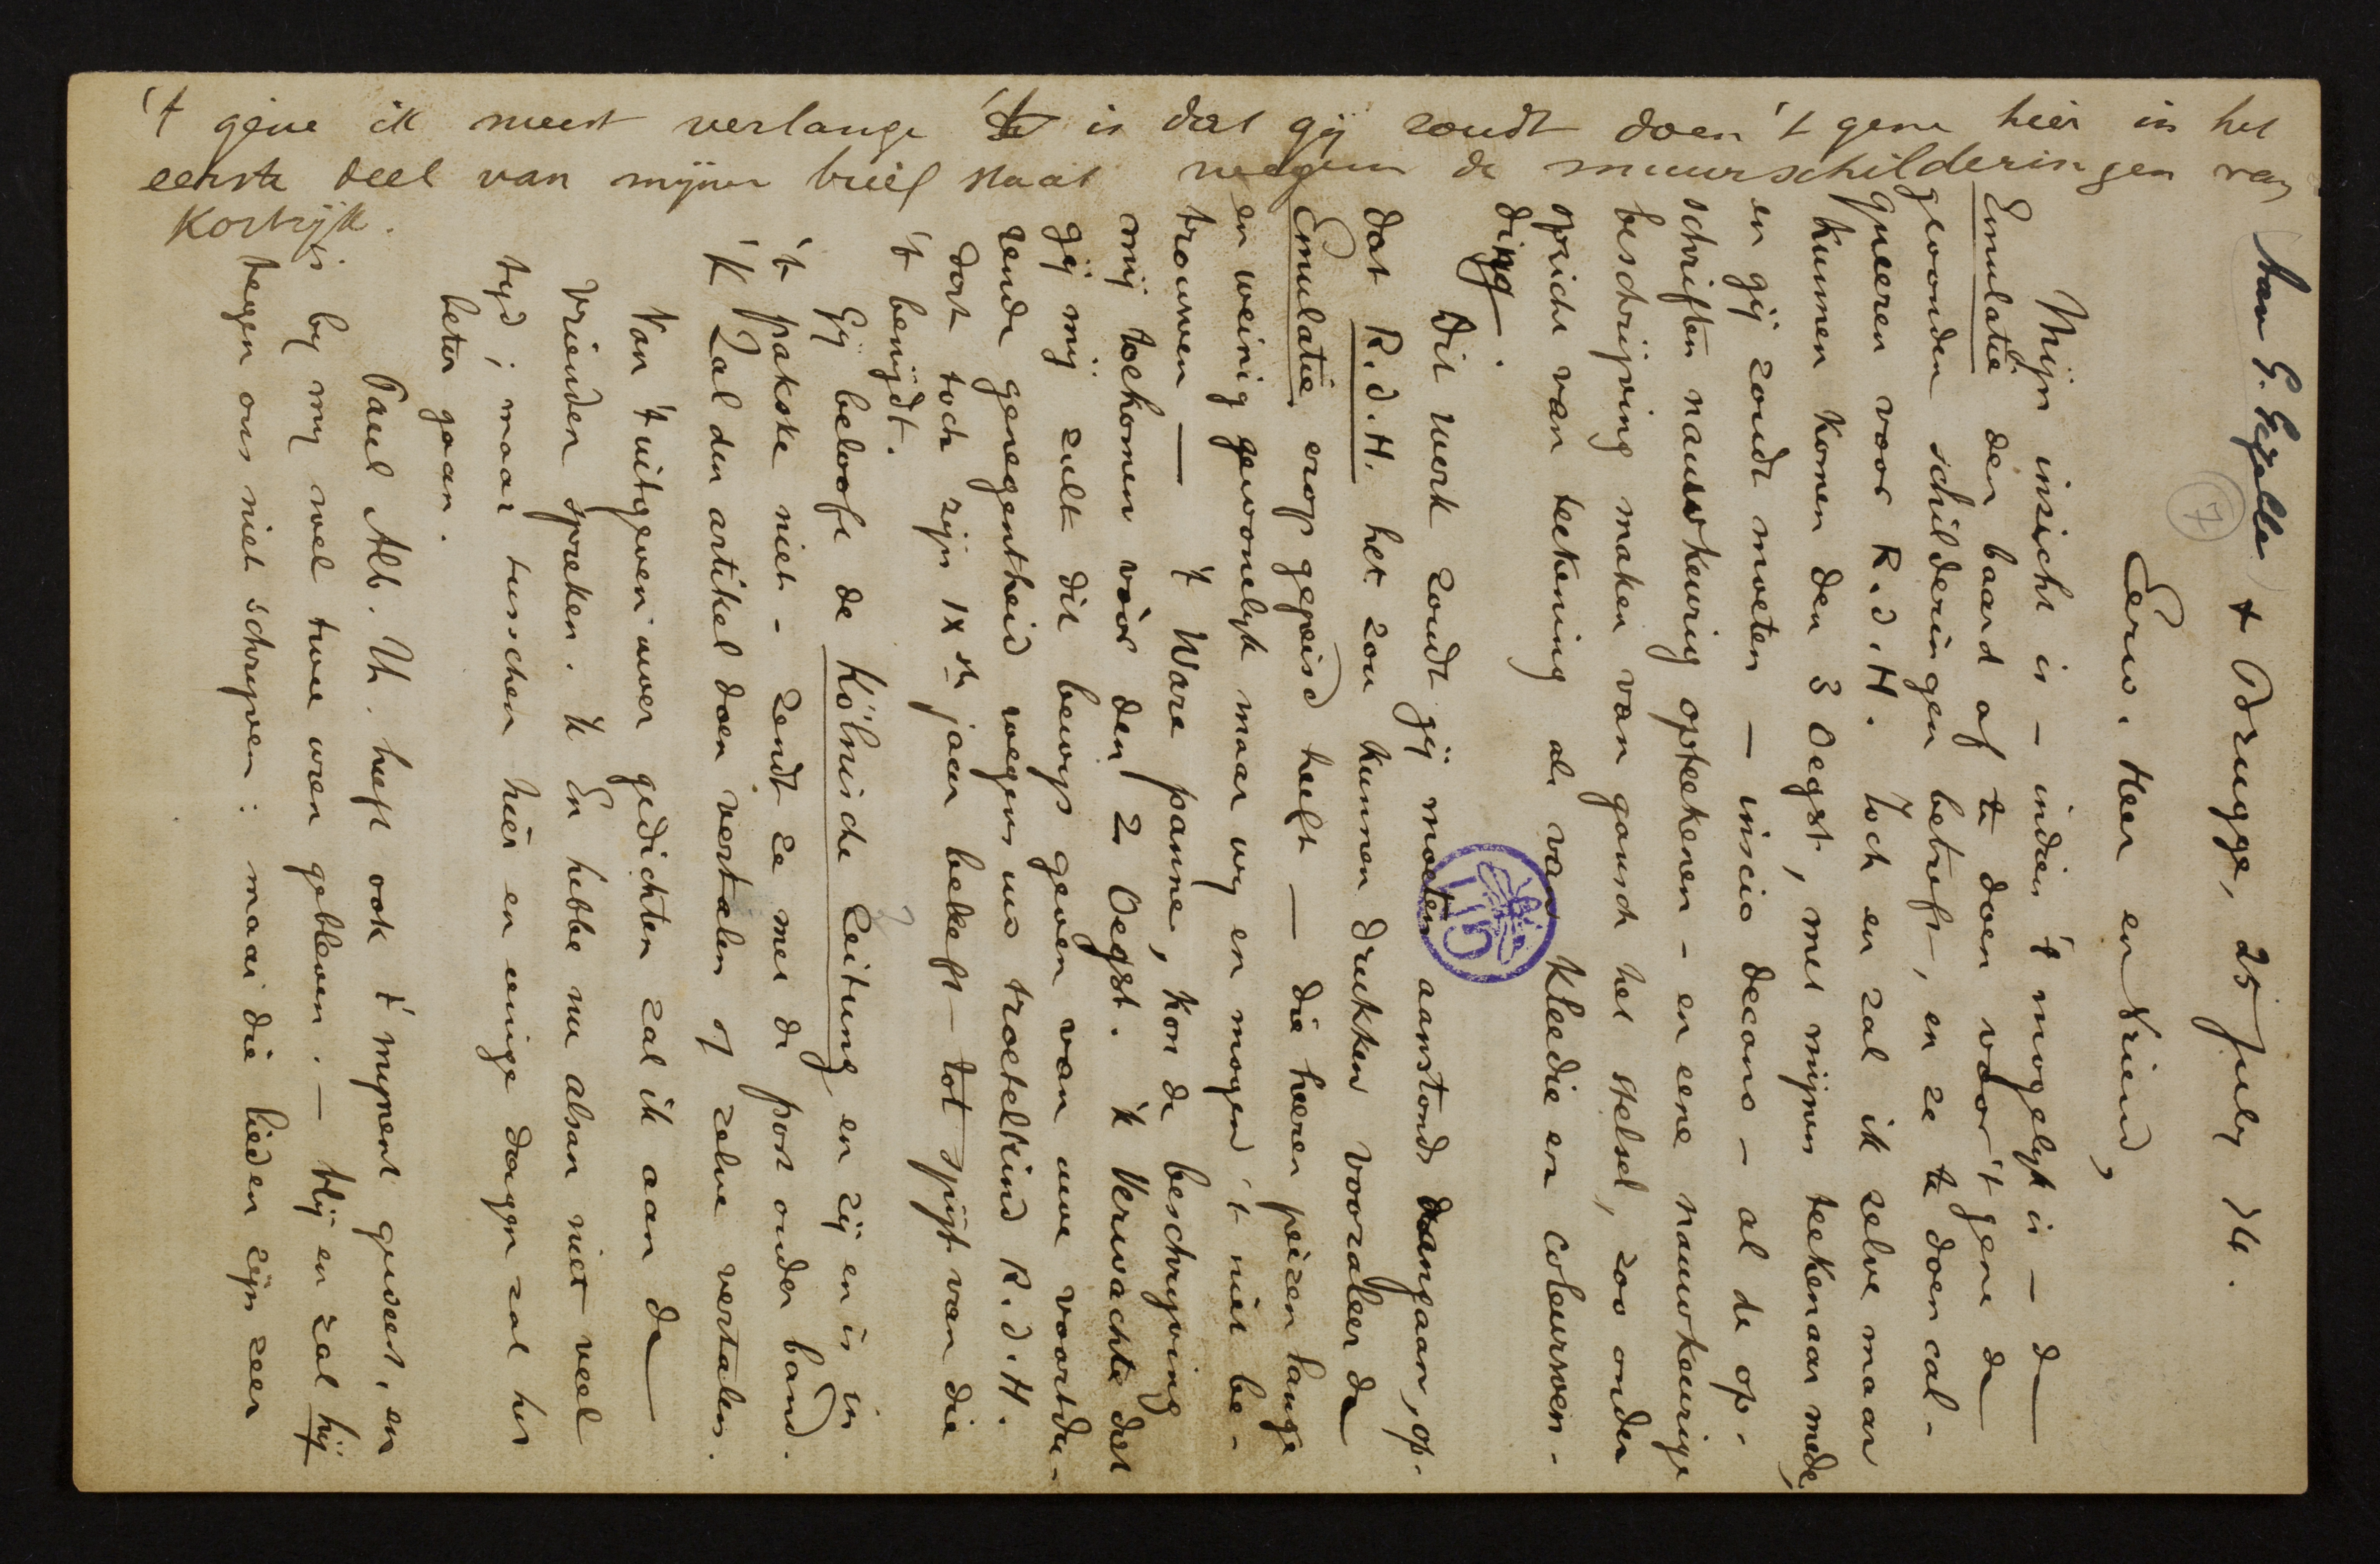 Aan G. Gezelle
+ Brugge, 25 July 74.
7
Eerw. Heer en Vriend,
Mijn insicht is – indien 't mogelyk is – de
Emulatie den baard af te doen voor 't gene de
gevonden schilderingen betreft, en ze te doen cal-
queeren voor R. d. H. Toch en zal ik zelve maar
kunnen komen den 3 Oegst, met mijnen teekenaar mede,
en gij zoudt moeten – inscio decano – al de op-
schriften nauwkeurig opteekenen – en eene nauwkeurige
beschrijving maken van gansch het stelsel, zoo onder
opzicht van teekening als van kleedie en coleurwen-
ding.
Dit werk zoudt gij moeten aanstonds aangaan, op-
dat R. d. H. het zou kunnen drukken vooraleer de
Emulatie erop gepeisd heeft – die heeren peizen lange
en weinig gewonelyk maar wy en mogen 't niet be-
trouwen – 't Ware panne, kon de beschryving
mij toekomen vóór den 2 Oegst. 'k Verwachte dat
gij mij zult dit bewys geven van uwe voortdu-
rende genegentheid wegens uw troetelkind R. d. H.
dat toch zijn IXste jaar beleeft – tot spijt van die
't benijdt.
Gij beloofe de Kölnische Zeitung en zij en is in
't pakske niet – Zendt ze met de post onder band.
'k Zal den artikel doen vertalen of zelve vertalen.
Van 't uitgeven uwer gedichten zal ik aan de
vrienden spreken. 'k En hebbe nu alsan niet veel
tyd, maar tusschen hier en eenige dagen zal het
beter gaan.
Paul Alb. Th. heeft ook t' mynent geweest, en
is by my wel twee uren gebleven. – Hij en zal hij
tegen ons niet schryven: maar die lieden zijn zeer
't gene ik meest verlange 't is dat gij zoudt doen 't gene hier in het
eerste deel van mijnen brief staat wegen de muurschilderingen van
Kortrijk.